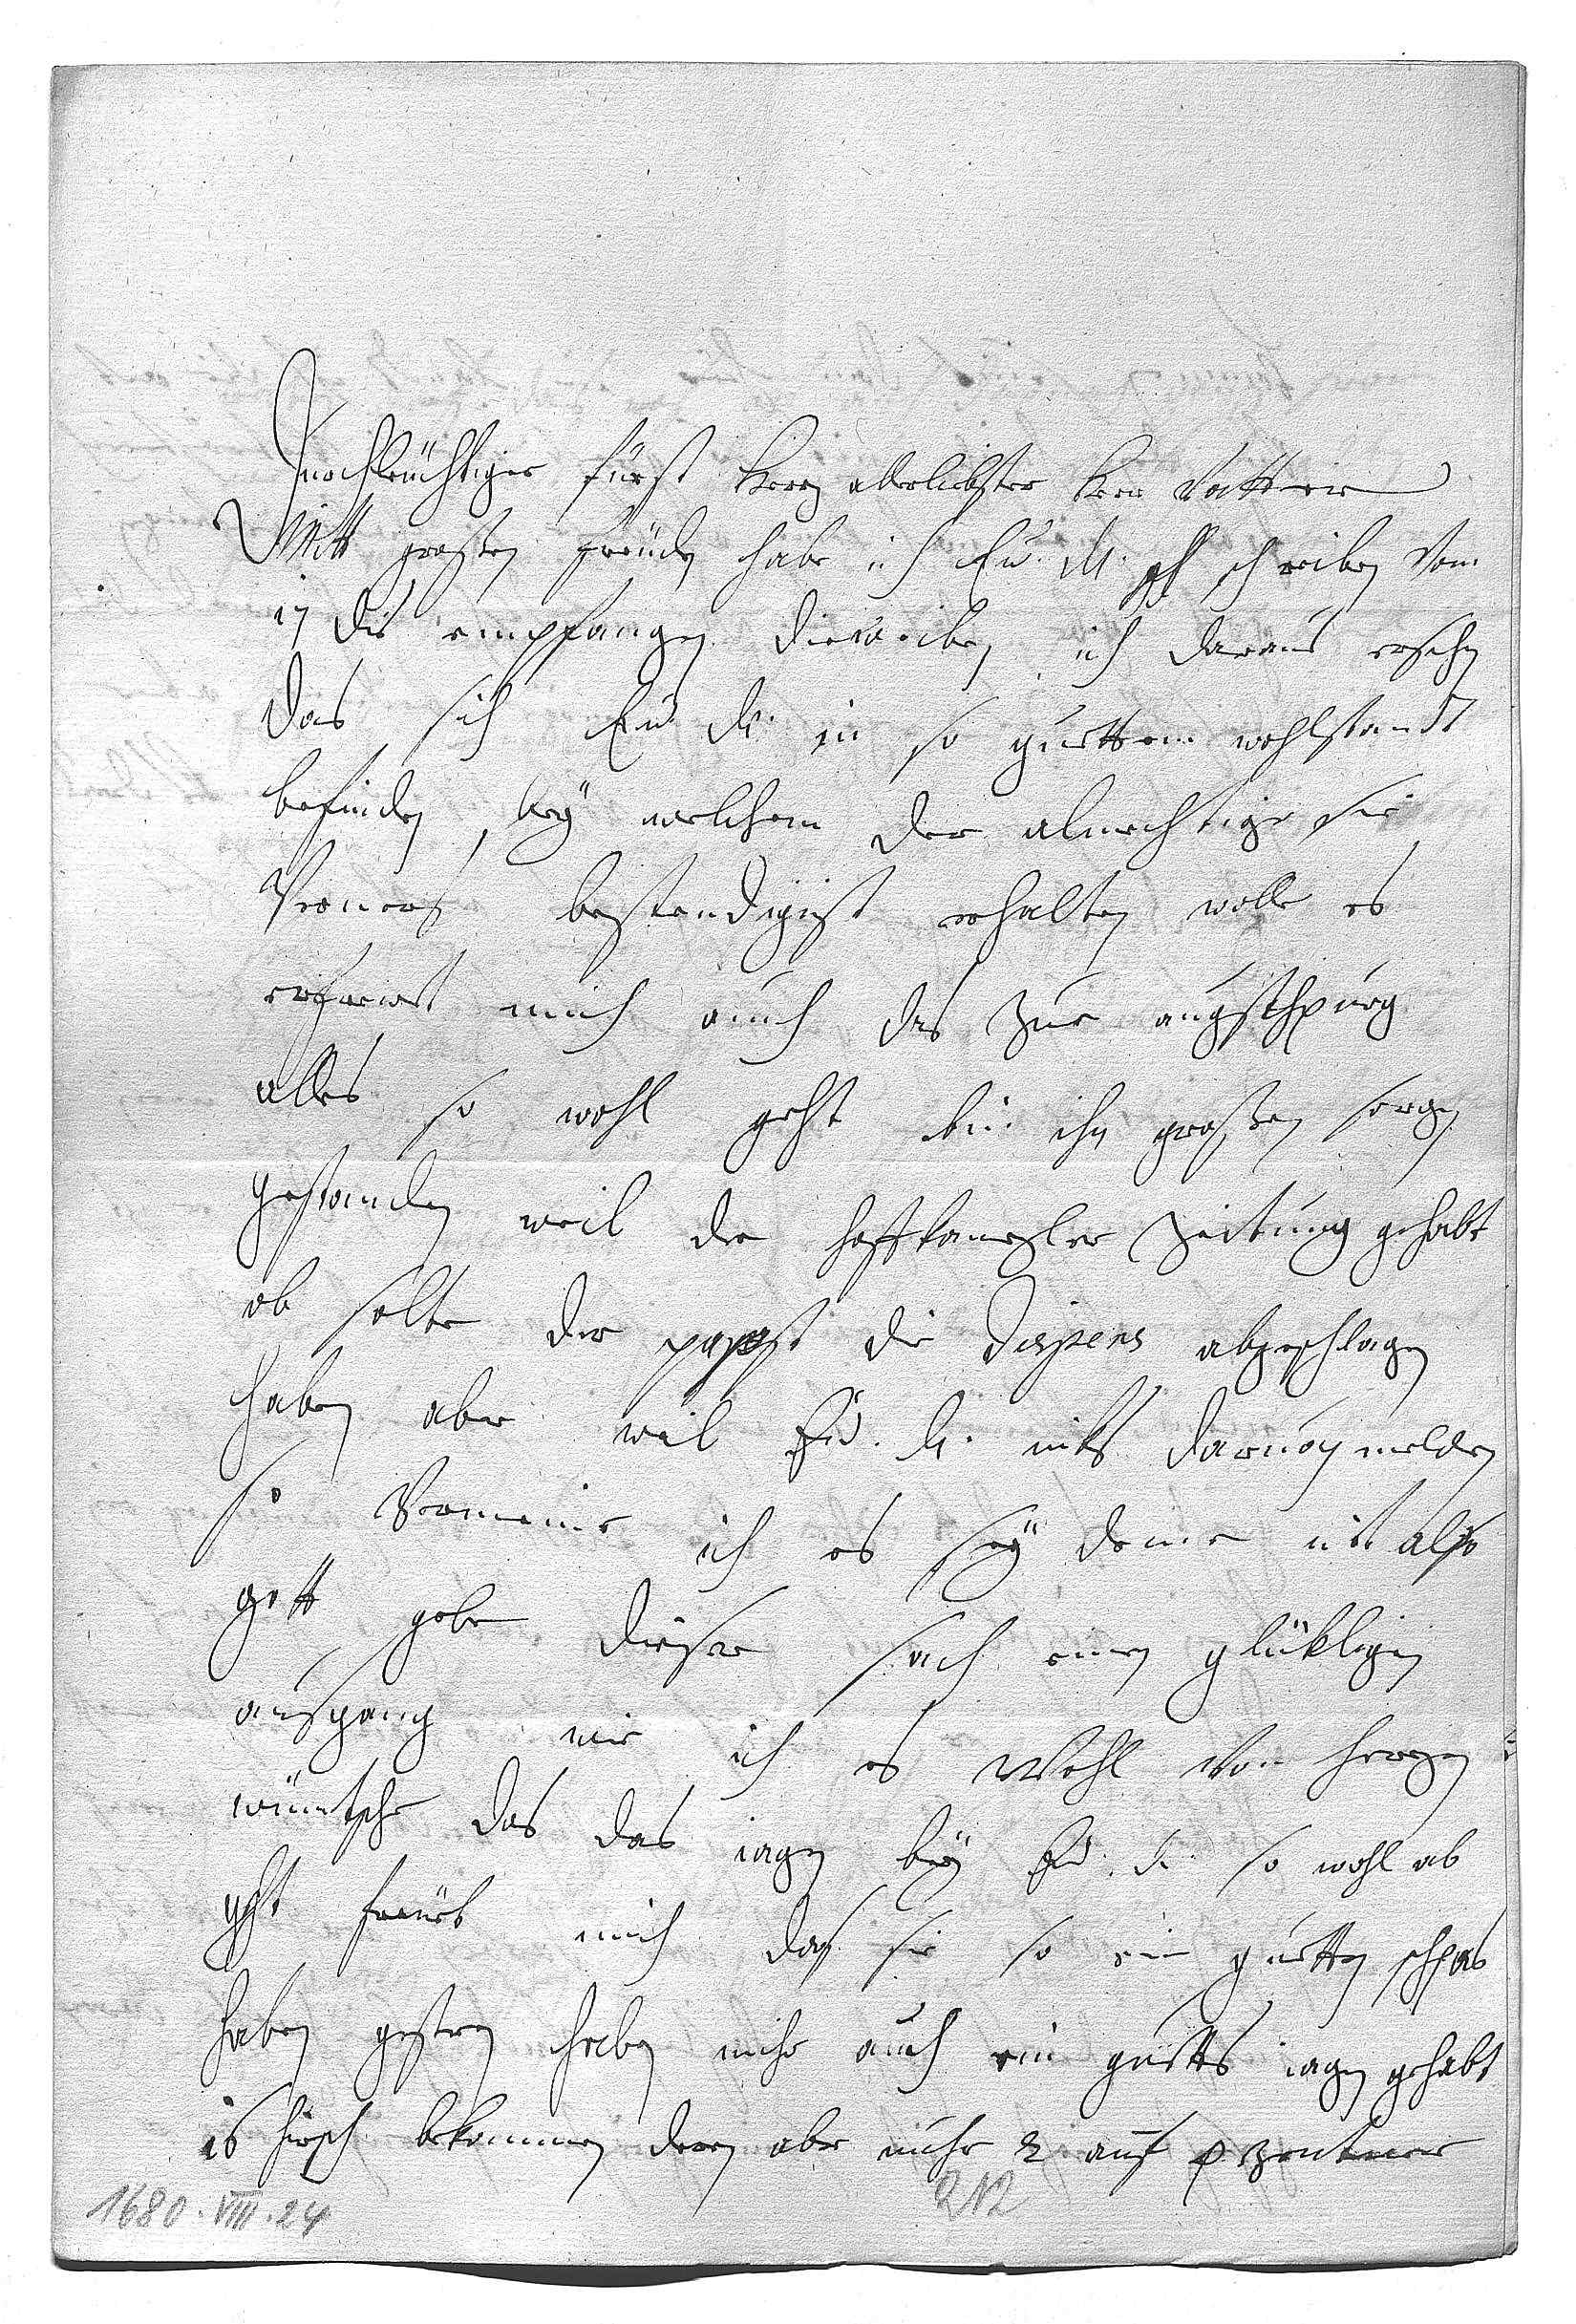 Durchleüchtiger fürst herr allerliebster herr vatter
Mitt grosten freüden habe ich Eü. M. schreiben vom
17 dis empfangen dieweilen ich daraus ersehen
das sich Eü M. in so guettem wohlstandt
befinden, beÿ welchem der almechtige sie
verners bestendigist erhalten wolle es
erfreiet mich auch das zue augschpurg
alles so wohl geht bin ihn grossen sorgen
gestanden weil der hoffkanzler zeitung gehabt
ob solte der pappst die dispens abgeschlagen
haben aber weil Eü. M. nits darvon melden
so vermeine ich es seÿ deme nit also
gott gebe dieser sach einen glükligen
ausgang wie ich es wohl von herzen
wüntsche das das iagen beÿ Eü. M. so wohl ab
geht freüet mich das sie so ein guetten schpas
haben gestern haben mihr auch ein guetts iagen gehabt
16 hirsch bekommen deren aber nuhr 2 auf zentner
1680. VIII. 24
212